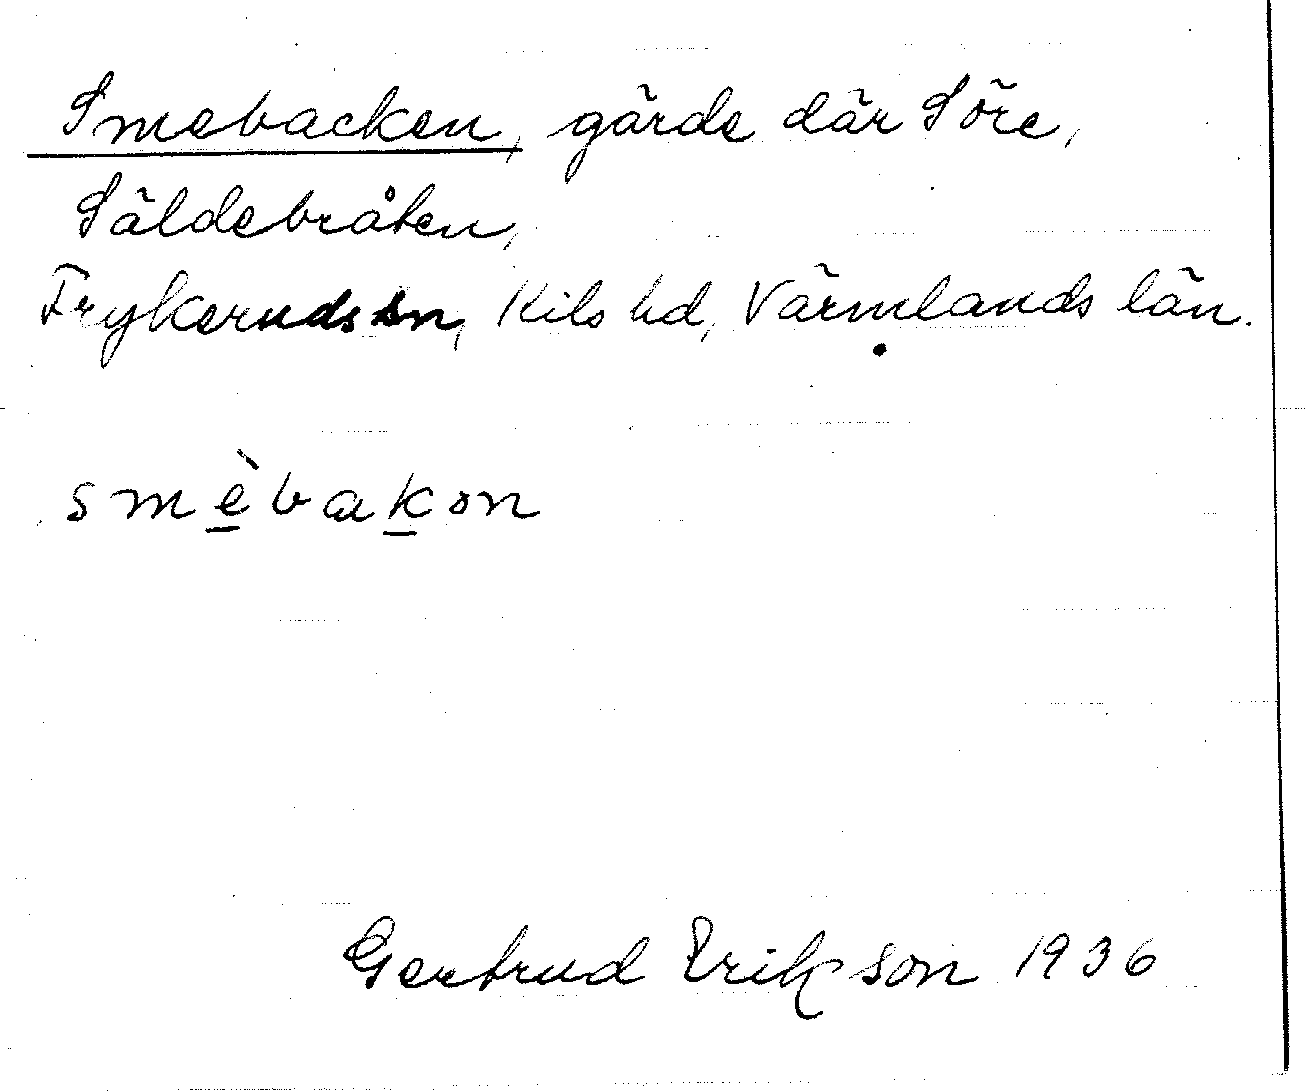 Smebacken, gärde där Söre,
Säldebråten,
Frykeruds sn, Kils hd, Värmlands län.
smèbakən
Gertrud Erikson 1936